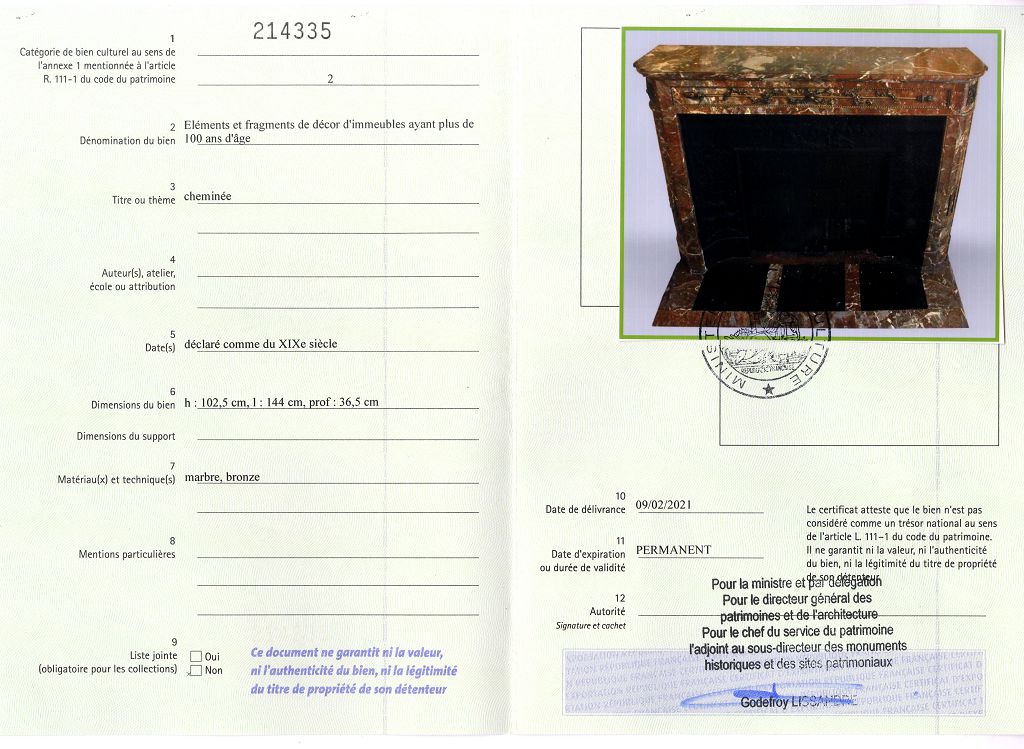 214335
1
Catégorie de bien culturel au sens de
l'annexe 1 mentionnée à l'article
R. 111-1 du code du patrimoine
2
2
Dénomination du bien
Eléments et fragments de décor d'immeubles ayant plus de
100 ans d'âge
3
Titre ou thème
cheminée
4
Auteur(s), atelier,
école ou attribution
5
Date(s)
déclaré comme du XIXe siècle
6
Dimensions du bien
h : 102,5 cm, l : 144 cm, prof : 36,5 cm
Dimensions du support
7
Matériau(x) et technique(s)
marbre, bronze
8
Mentions particulières
9
Liste jointe
(obligatoire pour les collections)
Oui
Non
Ce document ne garantit ni la valeur,
ni l'authenticité du bien, ni la légitimité
du titre de propriété de son détenteur
MINIST ULTURE
RÉPUBLIQUE FRANÇAISE
10
Date de délivrance
09/02/2021
11
Date d'expiration
ou durée de validité
PERMANENT
Le certificat atteste que le bien n'est pas
considéré comme un trésor national au sens
de l'article L. 111-1 du code du patrimoine.
Il ne garantit ni la valeur, ni l'authenticité
du bien, ni la légitimité du titre de propriété
de son détenteur.
12
Autorité
Signature et cachet
Pour la ministre et par délégation
Pour le directeur général des
patrimoines et de l'architecture
Pour le chef du service du patrimoine
l'adjoint au sous-directeur des monuments
historiques et des sites patrimoniaux
Godefroy LISSANDRE